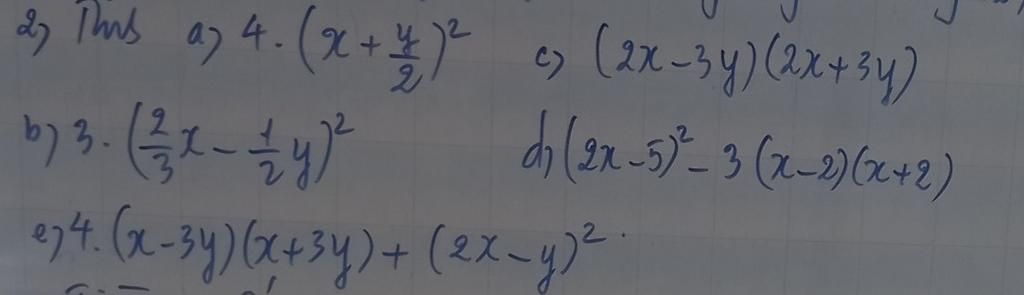 2) Tính a) 4.(x + y/2)² c) (2x - 3y)(2x + 3y)
b) 3.(2/3x - 1/2y)² d) (2x - 5)² - 3(x - 2)(x + 2)
e) 4.(x - 3y)(x + 3y) + (2x - y)²